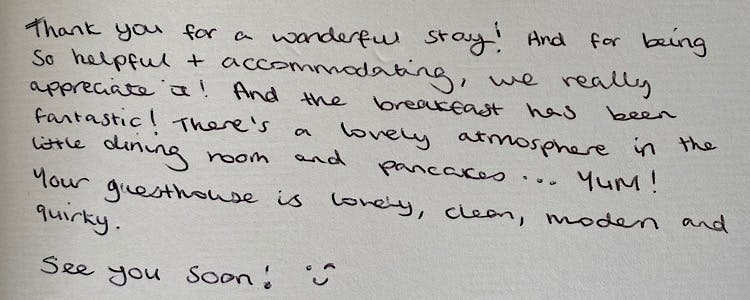 Thank you for a wonderful stay! And for being
so helpful + accommodating, we really
appreciate it! And the breakfast has been
fantastic! There's a lovely atmosphere in the
little dining room and pancakes ... YUM!
Your guesthouse is lovely, clean, modern and
quirky.
See you soon! :)